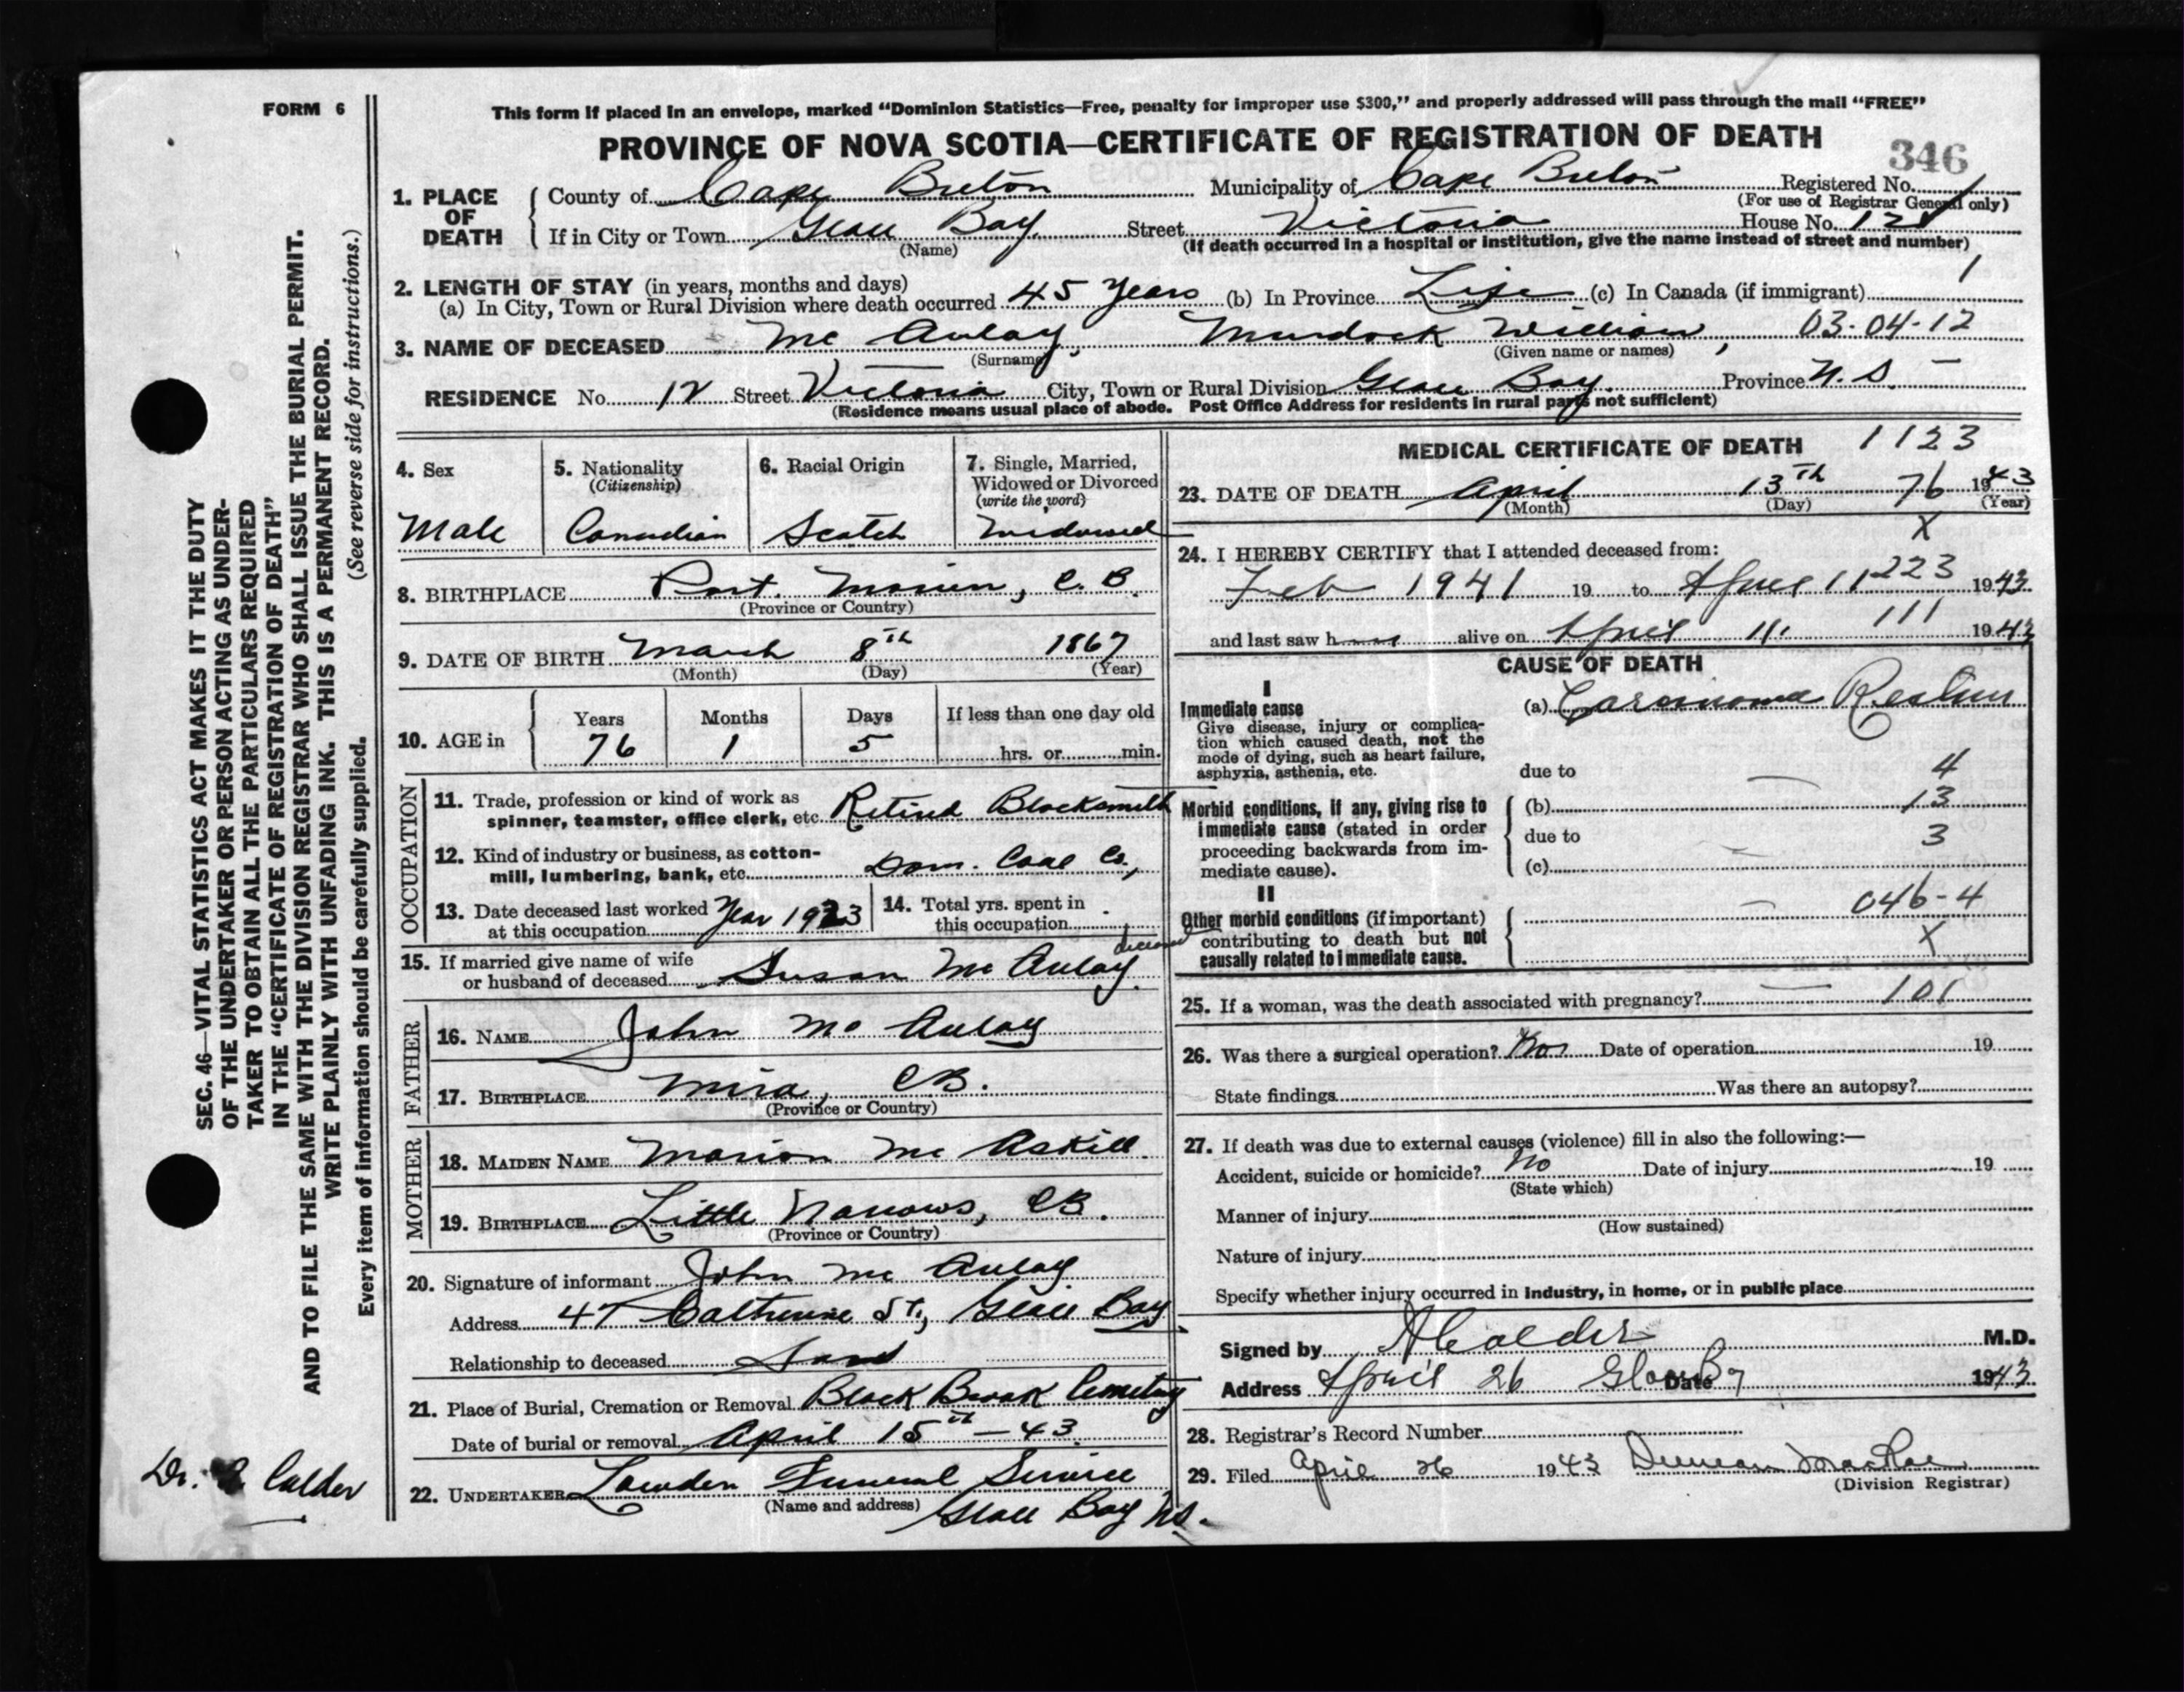 FORM 6
This form if placed in an envelope, marked “Dominion Statistics—Free, penalty for improper use $300,” and properly addressed will pass through the mail “FREE”
PROVINCE OF NOVA SCOTIA—CERTIFICATE OF REGISTRATION OF DEATH
346
1. PLACE OF DEATH
County of Cape Breton Municipality of Cape Breton Registered No.
(For use of Registrar General only)
If in City or Town Glace Bay Street Victoria House No. 12
(Name) (If death occurred in a hospital or institution, give the name instead of street and number)
1
2. LENGTH OF STAY (in years, months and days)
(a) In City, Town or Rural Division where death occurred 45 Years (b) In Province Life (c) In Canada (if immigrant)
3. NAME OF DECEASED Mc Aulay, Murdock William, 03-04-12
(Surname) (Given name or names)
RESIDENCE No. 12 Street Victoria City, Town or Rural Division Glace Bay. Province N.S. —
(Residence means usual place of abode. Post Office Address for residents in rural parts not sufficient)
4. Sex
Male
5. Nationality
(Citizenship)
Canadian
6. Racial Origin
Scotch
7. Single, Married,
Widowed or Divorced
(write the word)
Widowed
8. BIRTHPLACE Port. Morien, C.B.
(Province or Country)
9. DATE OF BIRTH March 8th 1867
(Month) (Day) (Year)
10. AGE in
Years Months Days If less than one day old
76 1 5 hrs. or min.
OCCUPATION
11. Trade, profession or kind of work as
spinner, teamster, office clerk, etc. Retired Blacksmith
12. Kind of industry or business, as cotton-
mill, lumbering, bank, etc. Dom. Coal Co.,
13. Date deceased last worked Year 1923
at this occupation
14. Total yrs. spent in
this occupation
deceased
15. If married give name of wife
or husband of deceased Susan Mc Aulay.
FATHER
16. NAME John Mc Aulay
17. BIRTHPLACE Mira, CB.
(Province or Country)
MOTHER
18. MAIDEN NAME Marion Mc Askill.
19. BIRTHPLACE Little Narrows, CB.
(Province or Country)
20. Signature of informant John Mc Aulay
Address 47 Catherine St, Glace Bay
Relationship to deceased Son
21. Place of Burial, Cremation or Removal Black Brook Cemetery
Date of burial or removal April 15th — 43.
22. UNDERTAKER Lowden Funeral Service
(Name and address) Glace Bay NS.
MEDICAL CERTIFICATE OF DEATH 1123
23. DATE OF DEATH April 13th 76 1943
(Month) (Day) (Year)
X
24. I HEREBY CERTIFY that I attended deceased from:
Feb 1941 19 to April 11 223 1943
111
and last saw h alive on April 11 1943
CAUSE OF DEATH
I
Immediate cause
Give disease, injury or complica-
tion which caused death, not the
mode of dying, such as heart failure,
asphyxia, asthenia, etc.
(a) Carcinoma Rectum
due to — 4
Morbid conditions, if any, giving rise to
immediate cause (stated in order
proceeding backwards from im-
mediate cause).
(b) 13
due to 3
(c)
II
Other morbid conditions (if important)
contributing to death but not
causally related to immediate cause.
— 046-4
X
25. If a woman, was the death associated with pregnancy? — 101
26. Was there a surgical operation? Date of operation 19
State findings Was there an autopsy?
27. If death was due to external causes (violence) fill in also the following:—
Accident, suicide or homicide? No Date of injury 19
(State which)
Manner of injury
(How sustained)
Nature of injury
Specify whether injury occurred in industry, in home, or in public place
Signed by Calder M.D.
Address April 26 Glace By Date 1943
28. Registrar's Record Number
29. Filed April 26 1943 Duncan MacRae
(Division Registrar)
SEC. 46—VITAL STATISTICS ACT MAKES IT THE DUTY
OF THE UNDERTAKER OR PERSON ACTING AS UNDER-
TAKER TO OBTAIN ALL THE PARTICULARS REQUIRED
IN THE “CERTIFICATE OF REGISTRATION OF DEATH”
AND TO FILE THE SAME WITH THE DIVISION REGISTRAR WHO SHALL ISSUE THE BURIAL PERMIT.
WRITE PLAINLY WITH UNFADING INK. THIS IS A PERMANENT RECORD.
Every item of information should be carefully supplied. (See reverse side for instructions.)
Dr. Calder